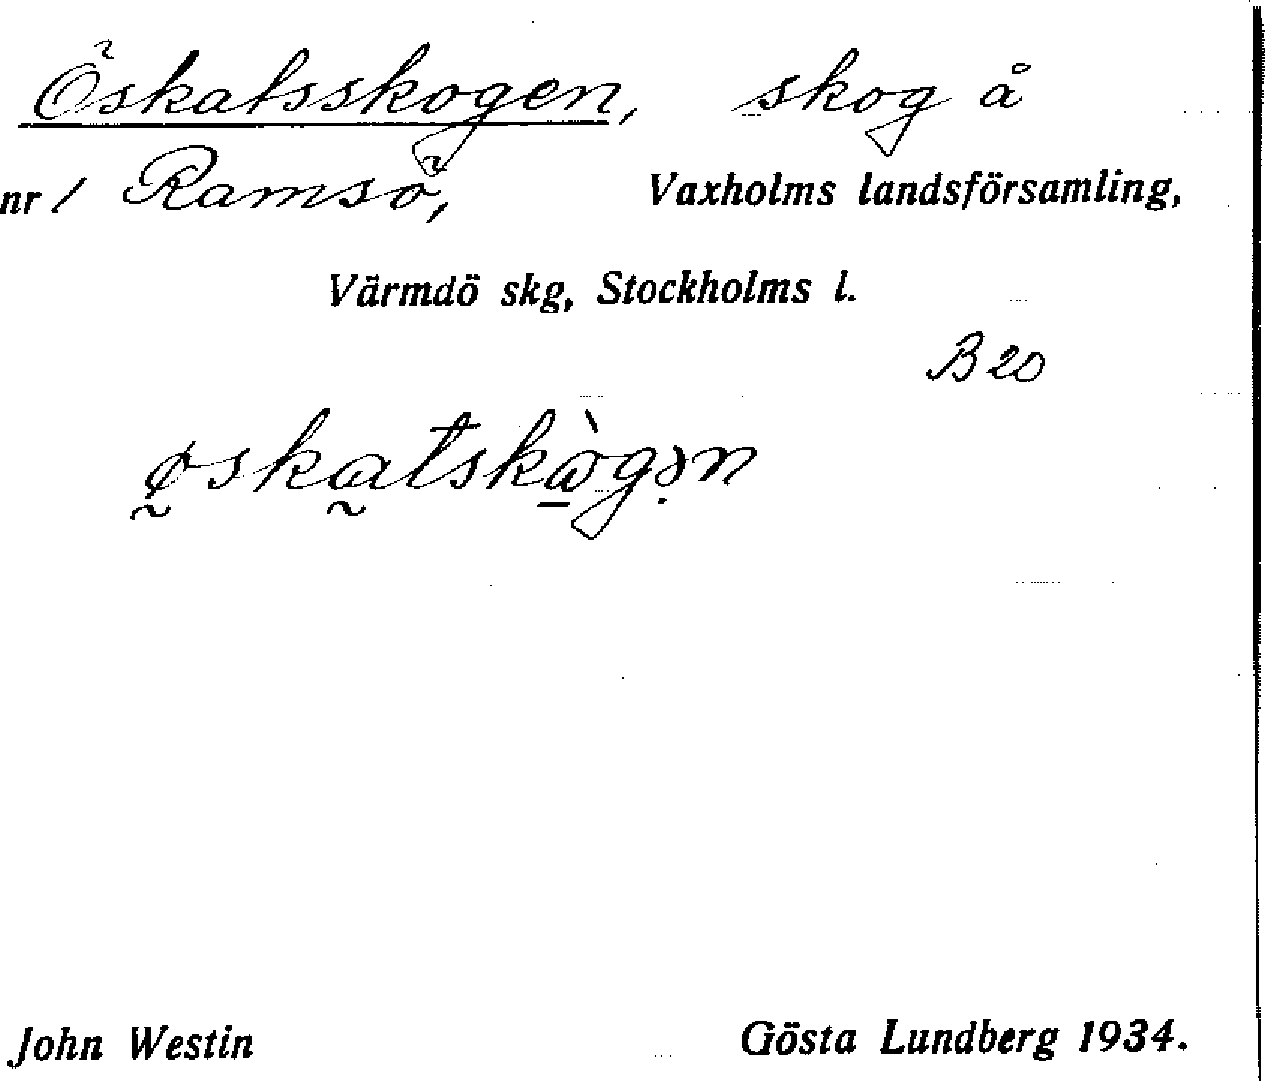 Öskatsskogen, skog å
nr 1 Ramsö, Vaxholms landsförsamling,
Värmdö skg, Stockholms l.
B 20
John Westin Gösta Lundberg 1934.